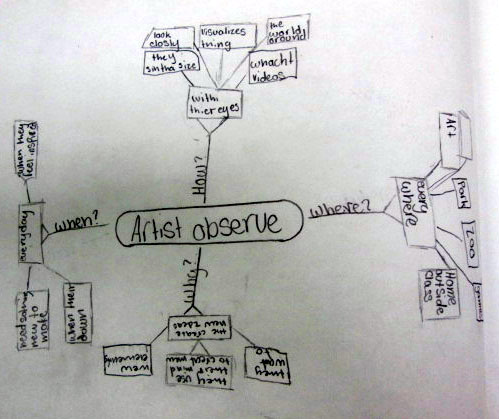 look
closly
visualizes
thing
the
world
around
they
sintha size
whacht
videos
with
thier eyes
How?
Artist observe
where?
every
where
Art
Park
Zoo
Home
outside
class
when?
everyday
when they
feel inspired
need sothing
new to
make
when their
Why?
the create
new ideas
new
elements
they use
their mind
to creat new
they
want
to